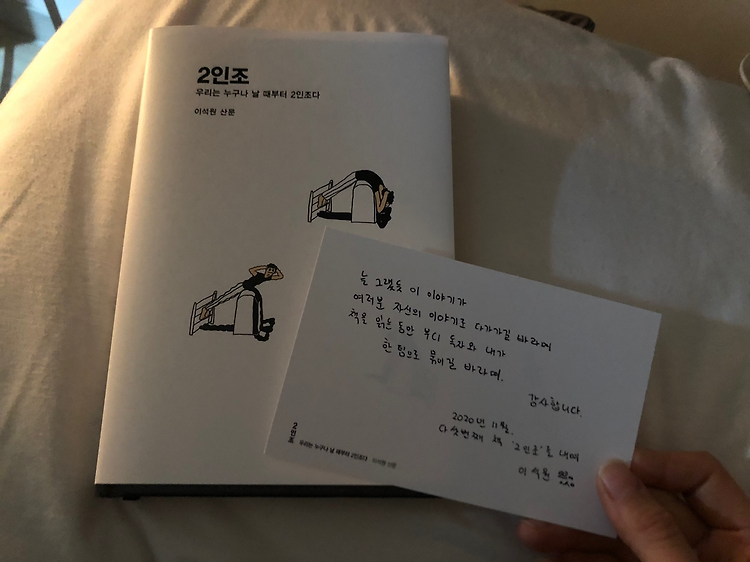 2인조
우리는 누구나 날 때부터 2인조다
이석원 산문
늘 그랬듯 이 이야기가
여러분 자신의 이야기로 다가가길 바라며
책을 읽는 동안 부디 독자와 내가
한 팀으로 묶이길 바라며.
감사합니다.
2020년 11월.
다섯번째 책 '2인조'를 내며
이석원
2인조
우리는 누구나 날 때부터 2인조다 이석원 산문